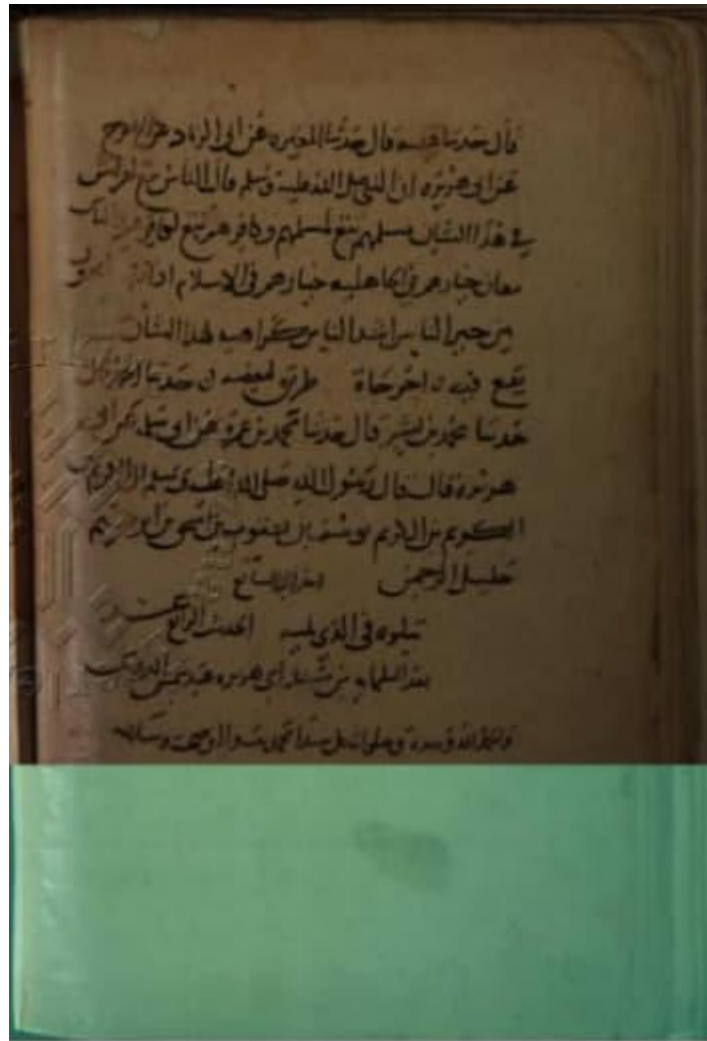 قال حدثنا قتيبة قال حدثنا المغيرة عن ابي الزناد عن الاعرج
عن ابي هريرة ان النبي صلى الله عليه وسلم قال الناس تبع لقريش
في هذا الشان مسلمهم تبع لمسلمهم وكافرهم تبع لكافرهم الناس
معادن خيارهم في الجاهلية خيارهم في الاسلام اذا
من خير الناس اشد الناس كراهية لهذا الشان
يقع فيه اخرجاه طريق لبعضه حدثنا احمد
حدثنا محمد بن بشر قال حدثنا محمد بن عمرو عن ابي سلمة عن ابي
هريرة قال قال رسول الله صلى الله عليه وسلم ان الكريم بن
الكريم بن الكريم يوسف بن يعقوب بن اسحق بن ابرهيم
خليل الرحمن اخر السابع
يتلوه في الذي يليه الحديث الرابع عشر
بعد المايه من مسند ابي هريرة
والحمد لله وحده وصلواته على سيدنا محمد واله وصحبه وسلامه